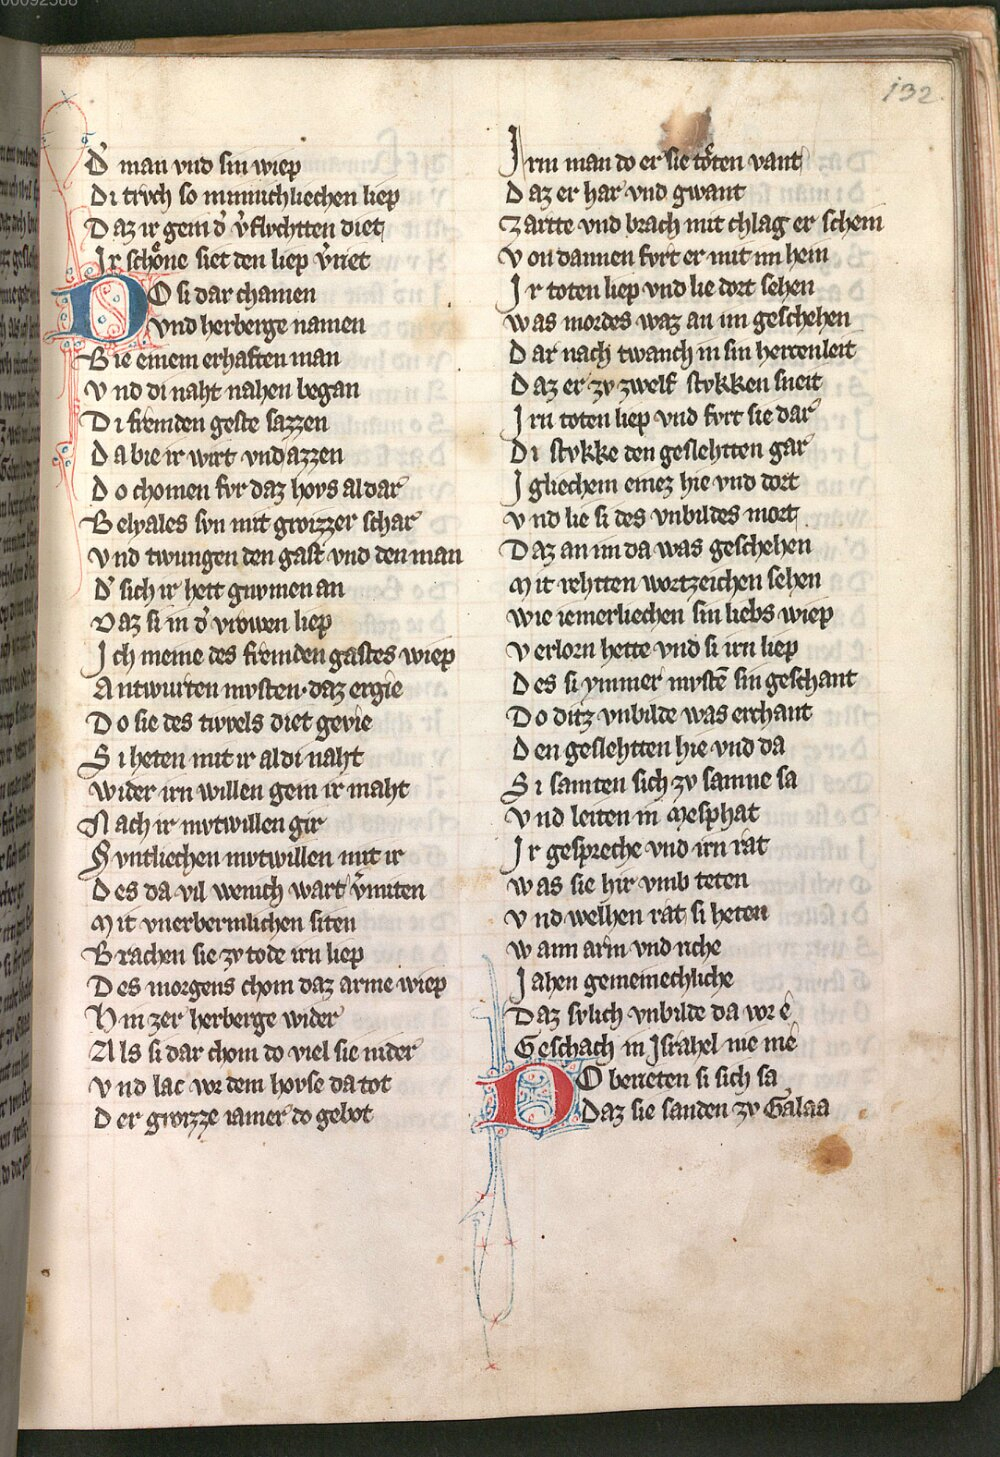 132
D' man vnd sin wiep
Di trvch so minnichliechen liep
Daz ir gein d' v'flvchtten diet
Ir schône siet den liep v'riet
DO si dar chamen
Vnd herberge namen
Bie einem erhaften man
Vnd di naht nahen began
Di fremden geste sazzen
Da bie ir wirt vnd azzen
Do chomen fvr daz hovs al dar
Belyales svn mit grozzer schar
Vnd twungen den gast vnd den man
D' sich ir hett gnvmen an
Daz si in d' vrowen liep
Ich meine des fremden gastes wiep
Antwurten mvsten · daz ergie
Do sie des tivvels diet gevie
Si heten mit ir al di naht
Wider irn willen gein ir maht
Nach ir mvtwillen gir
Svntliechen mvtwillen mit ir
Des da vil wenich wart v'miten
Mit vnerbermlichen siten
Brachen sie zv tode irn liep
Des morgens chom daz arme wiep
Hin zer herberge wider
Als si dar chom do viel sie nider
Vnd lac vor dem hovse da tot
Der grozze iamer do gebot
Irm man do er sie tôten vant
Daz er har vnd gwant
Zartte vnd brach mit chlag er schein
Von dannen fvrt er mit im hein
Ir toten liep vnd lie dort sehen
Was mordes waz an im geschehen
Dar nach twanch in sin hercenleit
Daz er zv zwelf stvkken sneit
Irn toten liep vnd fvrt sie dar
Di stvkke den geslehtten gar
Igliechem einez hie vnd dort
Vnd lie si des vnbildes mort
Daz an im da was geschehen
Mit rehtten wortzeichen sehen
Wie iemerliechen sin liebs wiep
Verlorn hette vnd si irn liep
Des si ymmer mvstē sin geschant
Do ditz vnbilde was erchant
Den geslehtten hie vnd da
Si samten sich zv samne sa
Vnd leiten in Mesphat
Ir gespreche vnd irn rat
Was sie hir vmb teten
Vnd welhen rat si heten
Wann arm vnd riche
Jahen gemeinechliche
Daz svlich vnbilde da vor ê
Geschach in Israhel nie mê
DO berieten si sich sa
Daz sie sanden zv Galaa